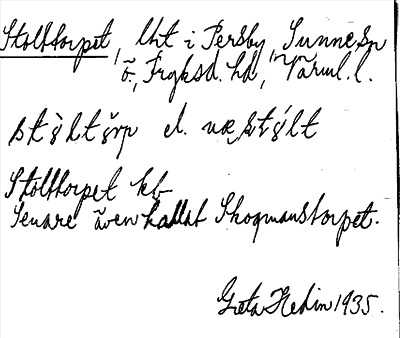 Stolttorpet, lht i Persby, Sunne sn
ö., Fryksd. hd, Värml. l.
stɣ̀ltɣ̀rp el. væstɣ́lt
Stolttorpet kb
Senare även kallat Skogmanstorpet.
Greta Hedin 1935.